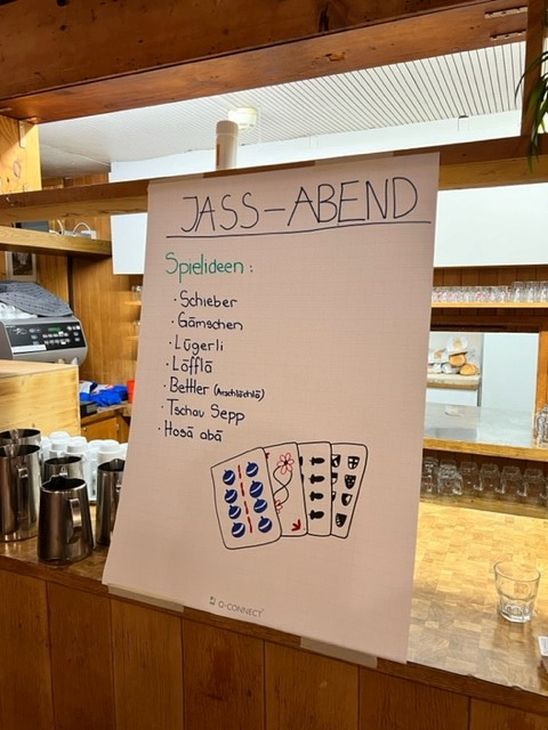 JASS-ABEND
Spielideen:
· Schieber
· Gämschen
· Lügerli
· Löfflä
· Bettler (Arschlöchlä)
· Tschau Sepp
· Hosä abä
Q-CONNECT